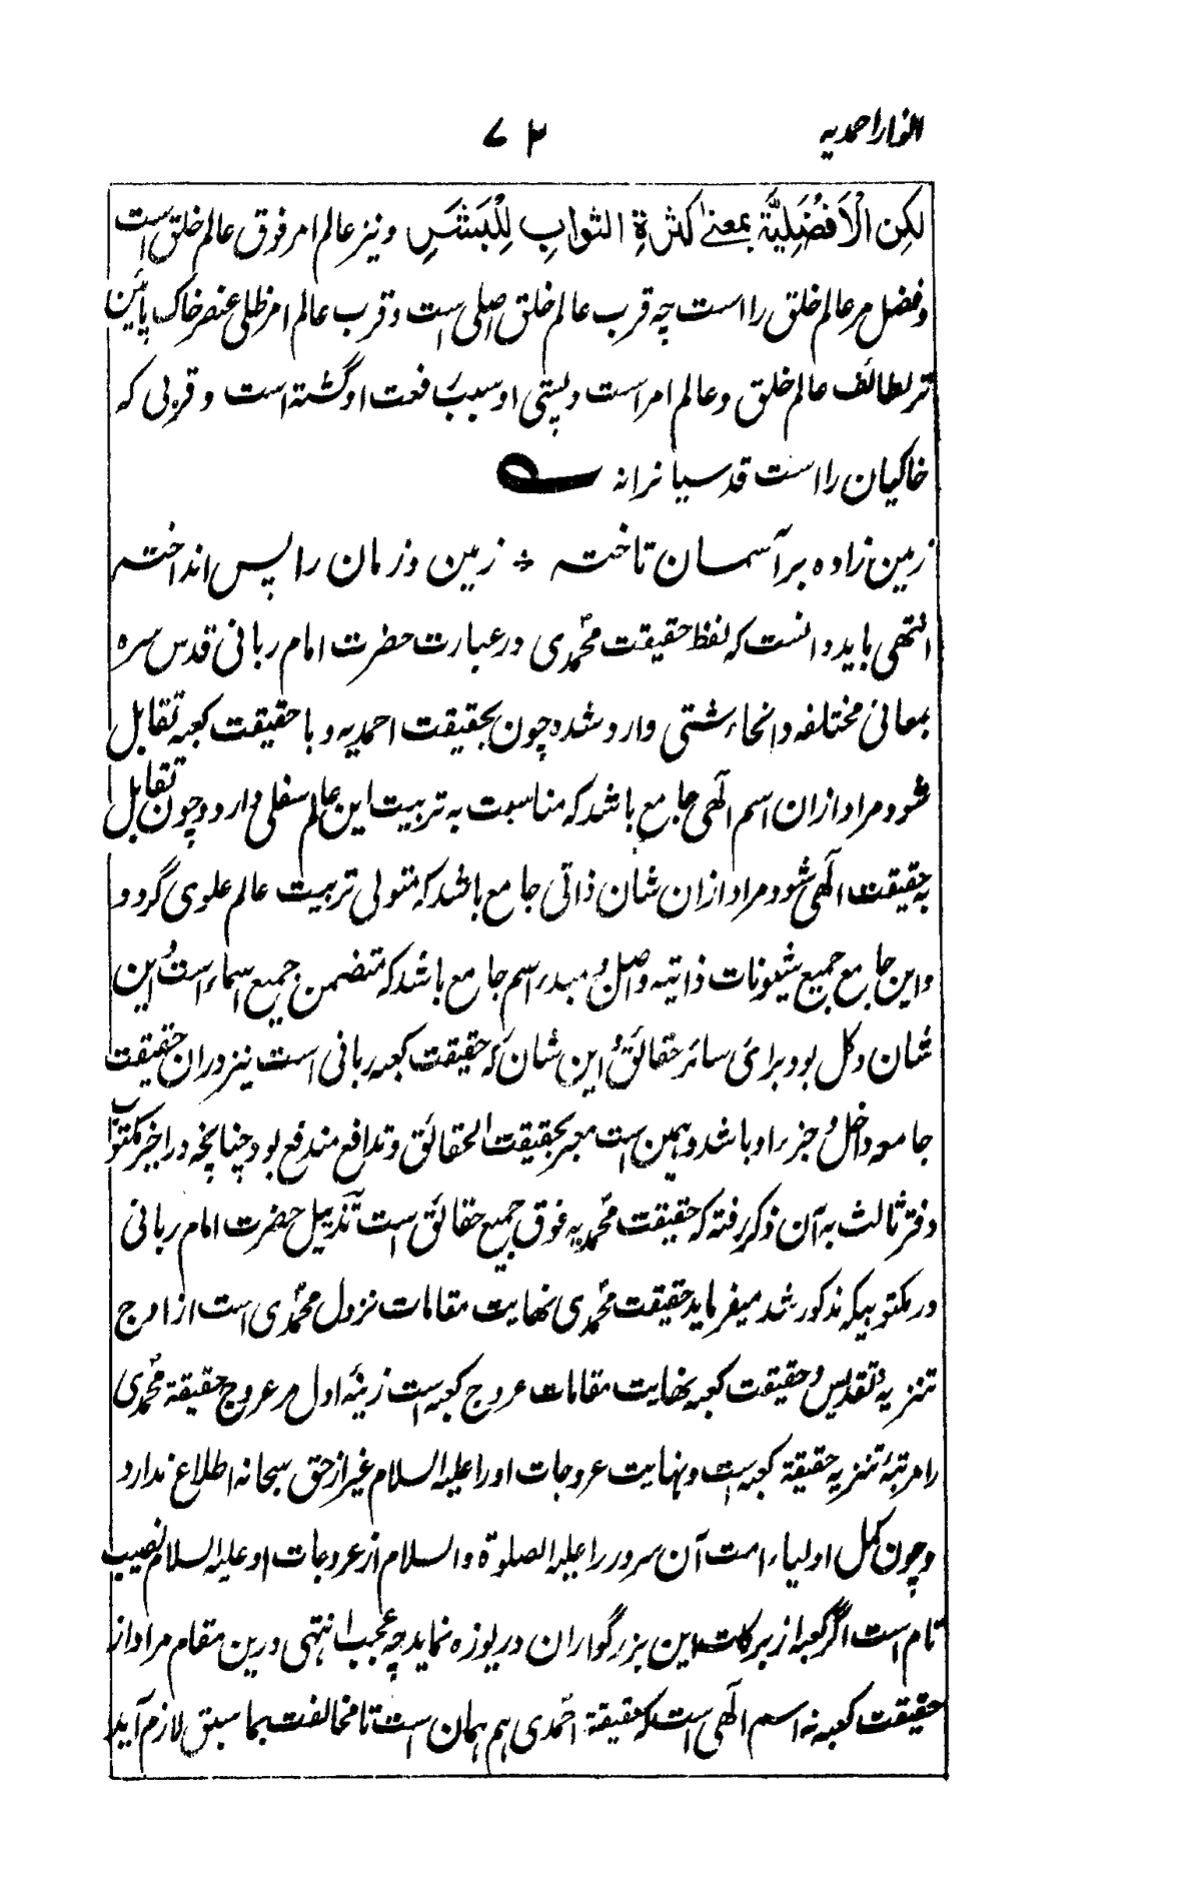 انوار احمدیه ۷۲
لکِن اْلَافضَلِیَّة بمعنےٰ کثرةِ الثوابِ لِلْبَشَرِ و نیز عالم امر فوق عالم خلق است
و فضل مر عالم خلق را است چه قرب عالم خلق اصلی است و قرب عالم امر ظلی عنصر خاک پائین
تر لطائف عالم خلق و عالم امر است و پستی او سبب رفعت او گشته است و قربی که
خاکیان را است قدسیانرا نه
زمین زاده بر آسمان تاخته ÷ زمین و زمان را پس انداخته
انتهی باید دانست که لفظ حقیقت محمدی در عبارت حضرت امام ربانی قدس سره
بمعانی مختلفه و انحاء شتی وارد شده چون بحقیقت احمدیه و با حقیقت کعبه تقابل
شود مراد ازان اسم الٓهی جامع باشد که مناسبت به تربیت این عالم سفلی دارد و چون تقابل
به حقیقت الٓهی شود مراد ازان شان ذاتی جامع باشد که متولی تربیت عالم علوی گردد
و این جامع جمیع شیونات ذاتیه و اصل و مبدء اسم جامع باشد که متضمن جمیع اسماء است و این
شان و کل بود برای سائر حقائق و این شان که حقیقت کعبه ربانی است نیز دران حقیقت
جامعه داخل و جزء او باشد و همین است معبر بحقیقت الحقائق و تدافع مندفع بود چنانچه در اخیر مکتوب
دفتر ثالث به آن ذکر رفته که حقیقت محمدیه فوق جمیع حقائق است تذییل حضرت امام ربانی
در مکتوبیکه مذکور شد میفرماید حقیقت محمدی نهایت مقامات نزول محمدی است از اوج
تنزیه و تقدیس و حقیقت کعبه نهایت مقامات عروج کعبه است زینهٔ اول مر عروج حقیقة محمدی
را مرتبهٔ تنزیه حقیقة کعبه است و نهایت عروجات او را علیه السلام غیر از حق سبحانه اطلاع ندارد
و چون کمل اولیاء امت آن سرور را علیه الصلوة والسلام از عروجات او علیه السلام نصیب
تام است اگر کعبه از برکات این بزرگواران دریوزه نماید چه عجب انتهی درین مقام مراد از
حقیقت کعبه نه اسم الٓهی است که حقیقة احمدی هم همان است تا مخالفت بما سبق لازم آید